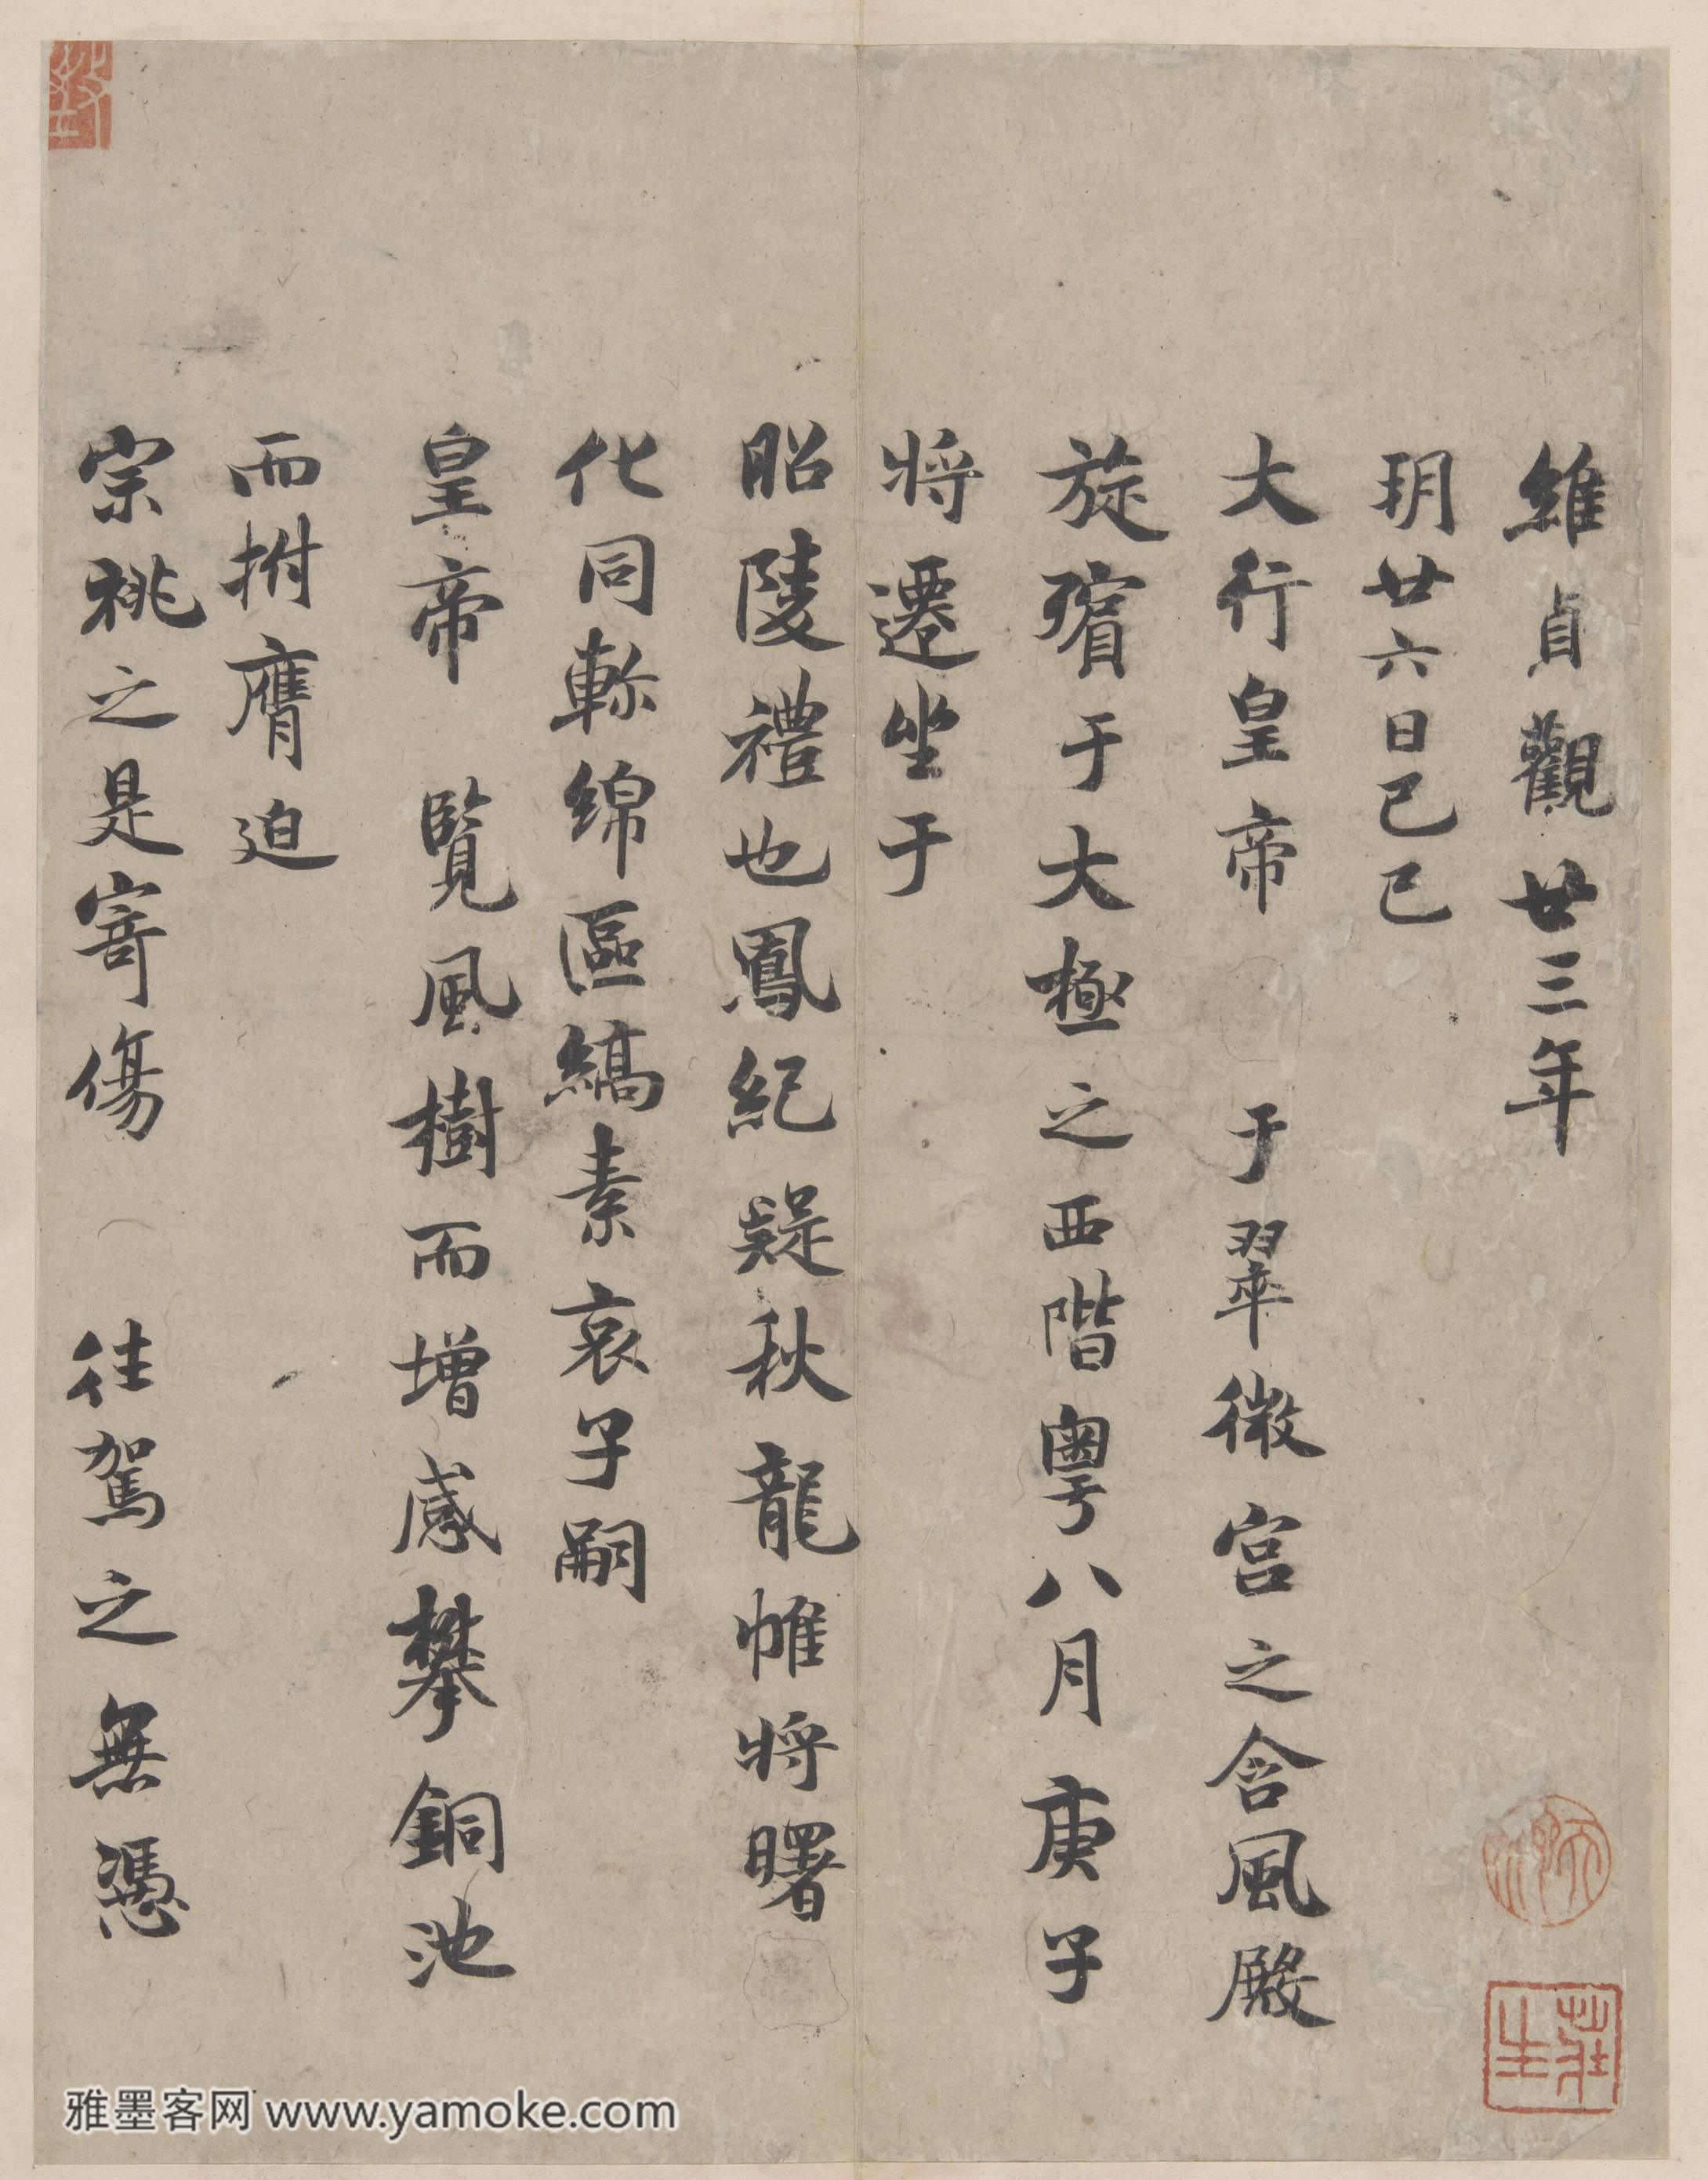 維貞觀廿三年
玥廿六日己巳
大行皇帝 于翠微宮之含風殿
旋殯于大極之西階粵八月庚子
將遷坐于
昭陵禮也鳳紀疑秋龍帷將曙
化同軫綿區縞素哀子嗣
皇帝 覽風樹而增感攀銅池
而拊膺迫
宗祧之是寄傷 往駕之無憑
雅墨客网 www.yamoke.com